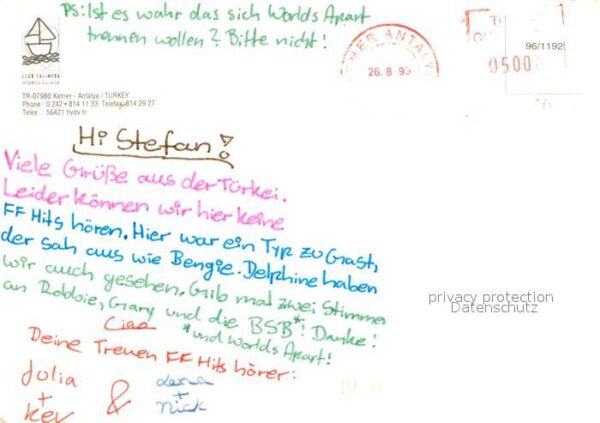 PS: Ist es wahr das sich Worlds Apart
trennen wollen? Bitte nicht!
CLUB SALIMERA
HYDROS VILLAGE
TR-07980 Kemer - Antalya / TURKEY
Phone : 0.242 • 814 11 33 Telefax: 814 29 27
Telex : 56421 hydv tr.
KEMER ANTALYA
26. 8 96
96/1192
0500
Hi Stefan!
Viele Grüße aus der Türkei.
Leider können wir hier keine
FF Hits hören. Hier war ein Typ zu Gast,
der sah aus wie Bengie. Delphine haben
wir auch gesehen. Gib mal zwei Stimmen
an Robbie, Gary und die BSB*! Danke!
Ciao
*und Worlds Apart!
Deine Treuen FF Hits hörer:
Julia
+
Kev
&
Lena
+
Nick
privacy protection
Datenschutz